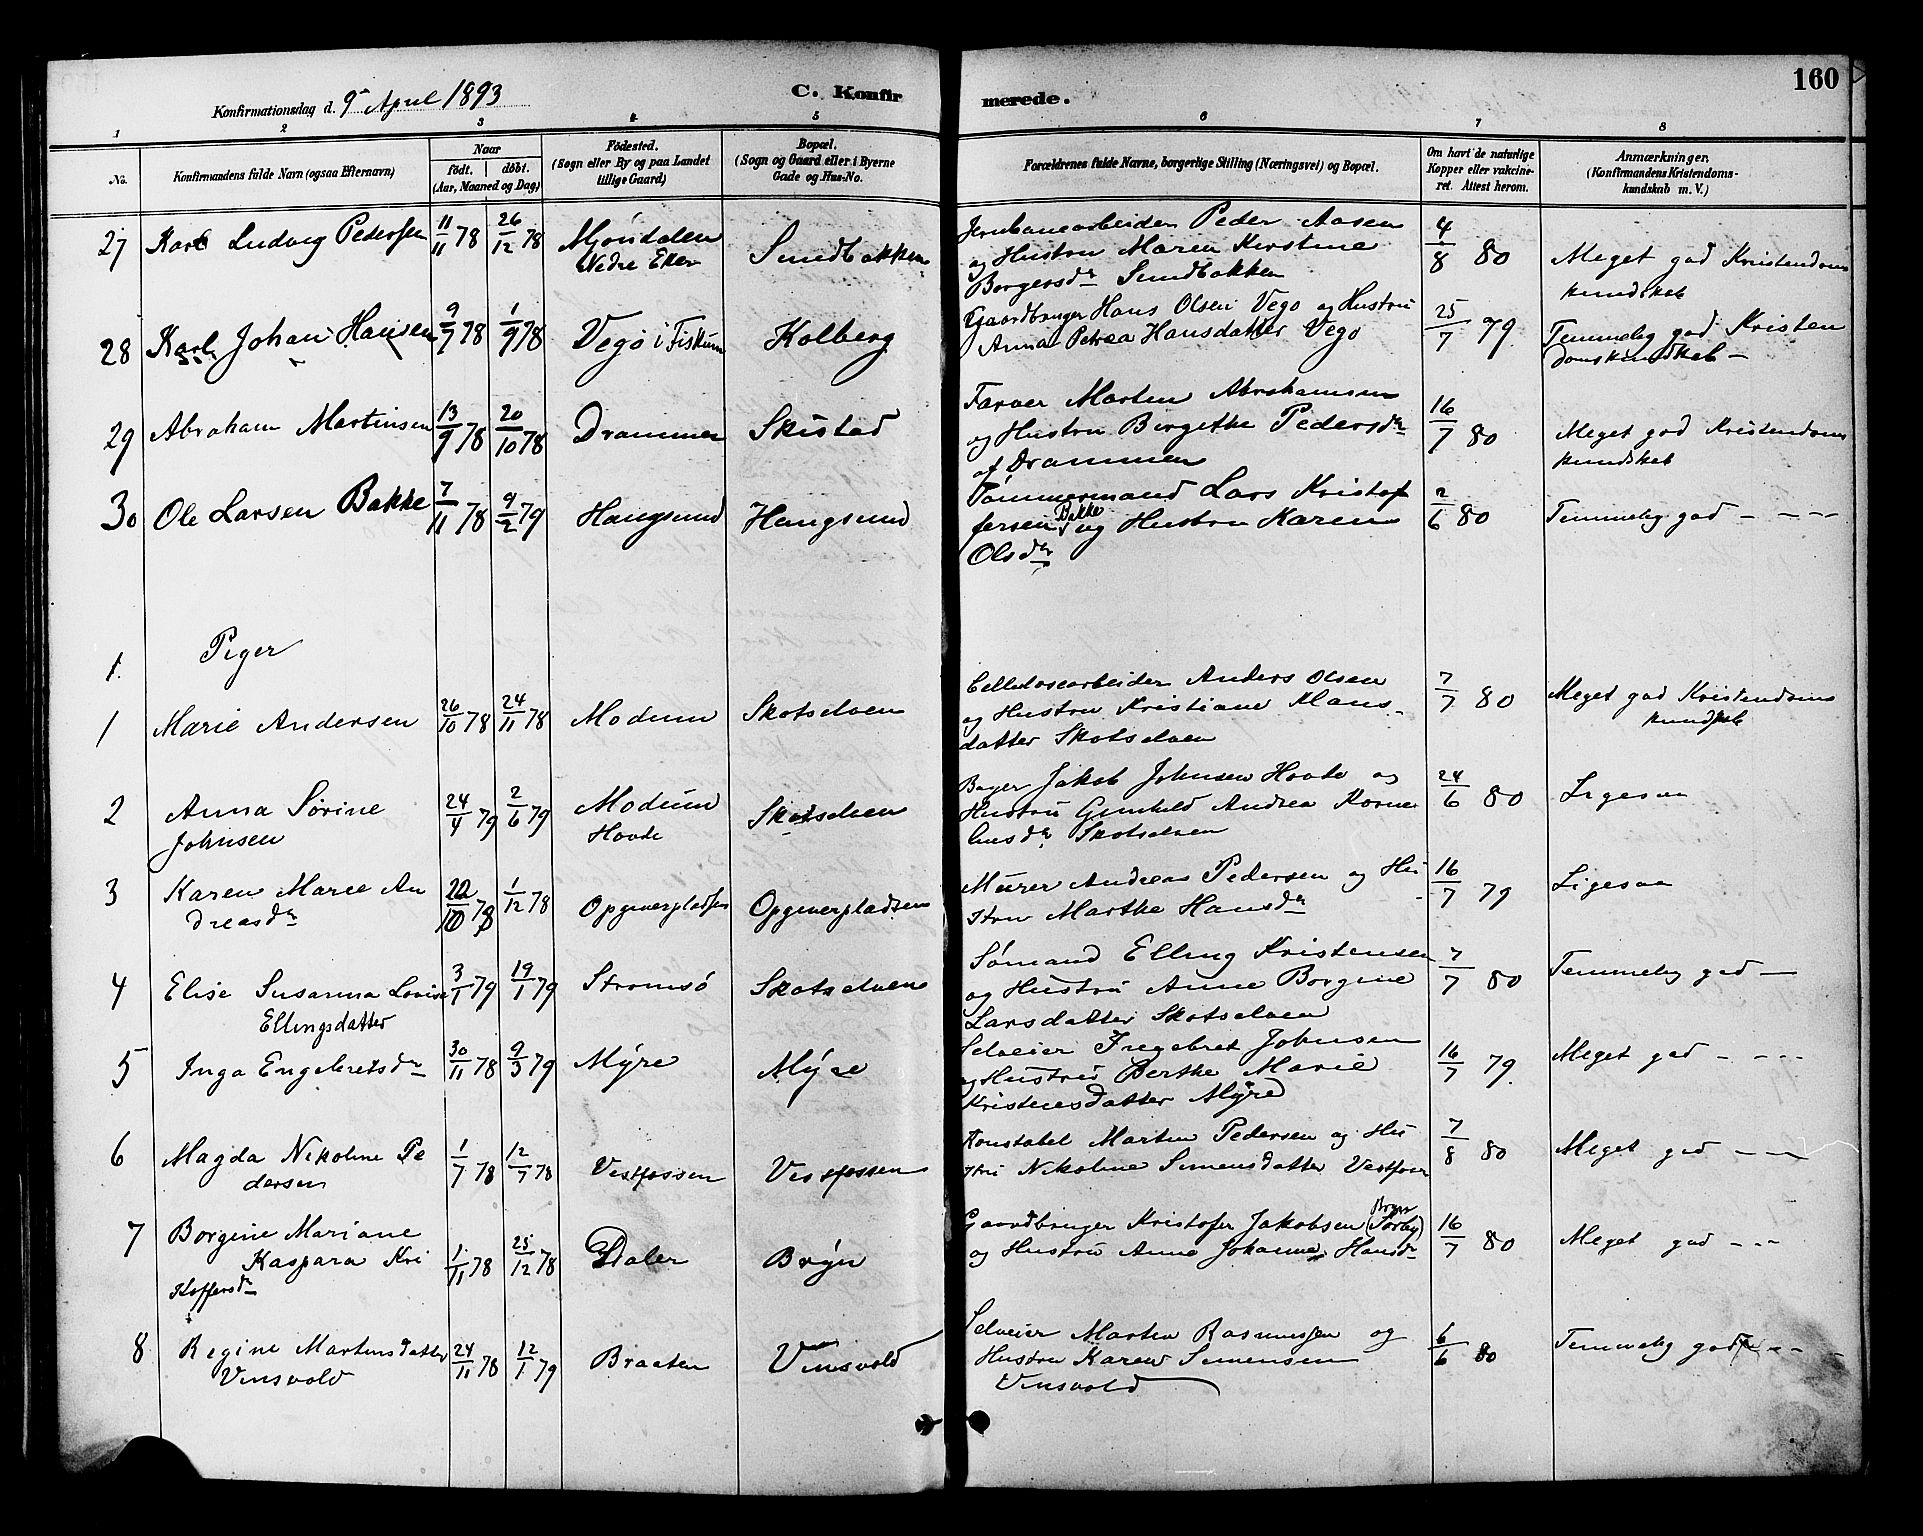 160
Konfirmationsdag d. 9 April 1893
C. Konfirmerede.
1 2 3 4 5 6 7 8
No.
Konfirmandens fulde Navn (ogsaa Efternavn)
Naar
født. døbt.
(Aar, Maaned og Dag)
Fødested.
(Sogn eller By og paa Landet
tillige Gaard.)
Bopæl.
(Sogn og Gaard eller i Byerne
Gade og Hus-No.
Forældrenes fulde Navne, borgerlige Stilling (Næringsvei) og Bopæl.
Om havt de naturlige
Kopper eller vakcine-
ret. Attest herom.
Anmærkninger.
(Konfirmandens Kristendoms-
kundskab m. V.)
27 Karl Ludvig Pedersen 11/11 78 26/12 78 Mjøndalen
Nedre Eker
Sundbakken
Jernbanearbeider Peder Aasen
og Hustru Maren Kirstine
Borgersdr Sundbakken
4/8 80 Meget god Kristendoms
kundskab
28 Karl Johan Hansen 9/7 78 1/9 78 Vego i Fiskum Kolberg
Gaardbruger Hans Olsen Vego og Hustru
Anna Petrea Hansdatter Vego
25/7 79 Temmelig god Kristen
domskundskab –
29 Abraham Martinsen 13/9 78 20/10 78 Drammen Skistad
Farver Morten Abrahamsen
og Hustru Birgethe Pedersdr
af Drammen
16/7 80 Meget god Kristendoms
kundskab
30 Ole Larsen Bakke 7/11 78 9/2 79 Hougsund Hougsund
Tømmermand Lars Kristof
fersen Bakke og Hustru Karen
Olsdr
2/6 80 Temmelig god – – – –
1. Piger
1 Marie Andersen 26/10 78 24/11 78 Modum Skotselven
Cellulosearbeider Anders Olsen
og Hustru Kristiane Hans-
datter Skotselven
7/7 80 Meget god Kristendoms
kundskab
2 Anna Sørine
Johnsen
24/4 79 2/6 79 Modum
Hovde
Skotselven
Bager Jakob Johnsen Hovde og
Hustru Gunhild Andrea Korne
liusdr Skotselven
24/6 80 Ligesaa
3 Karen Marie An
dreasdr
22/10 78 1/12 78 Opgaverpladsen Opgaverpladsen
Murer Andreas Pedersen og Hu
stru Marthe Hansdr
16/7 79 Ligesaa
4 Elise Susanna Lovise
Ellingsdatter
3/1 79 19/1 79 Strømsø Skotselven
Sømand Elling Kristensen
og Hustru Anne Borgine
Larsdatter Skotselven
7/7 80 Temmelig god –
5 Inga Engebretsdr 30/11 78 9/3 79 Myre Myre
Selveier Ingebret Johnsen
og Hustru Berthe Marie
Kristensdatter Myre
16/7 79 Meget god – – – –
6 Magda Nikoline Pe
dersen
1/7 78 12/7 78 Vestfossen Vestfossen
Konstabel Martin Pedersen og Hu
stru Nikoline Simensdatter Vestfossen
7/8 80 Meget god – – –
7 Borgine Mariane
Kaspara Kri
stoffersdr
1/11 78 25/12 78 Daler Bryn
Gaardbruger Kristofer Jakobsen Bryn (Sørby)
og Hustru Anne Johanne Hansdr
16/7 80 Meget god – – –
8 Regine Martinsdatter
Vinsvold
24/11 78 12/1 79 Braaten Vinsvold
Selveier Martin Rasmussen og
Hustru Karen Simensen
Vinsvold
6/6 80 Temmelig god – – –